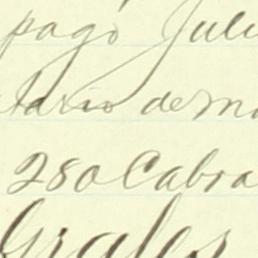 pago Juli
tario de m
280 Cabra
Grales